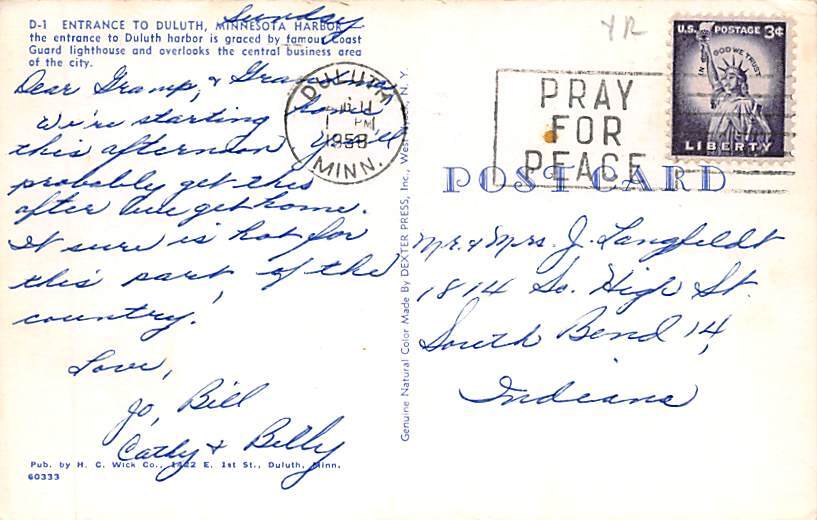 Sunday
D-1 ENTRANCE TO DULUTH, MINNESOTA HARBOR
the entrance to Duluth harbor is graced by famous Coast
Guard lighthouse and overlooks the central business area
of the city.
Dear Gramp, & Gramma,
We're starting home
this afternoon You'll
probably get this
after we get home.
It sure is hot for
this part of the
country!
Love,
Jo, Bill
Cathy & Billy
Pub. by H. C. Wick Co., 1422 E. 1st St., Duluth, Minn.
60333
Genuine Natural Color Made By DEXTER PRESS, Inc., West N. Y.
DULUTH
PM
1958
MINN.
PRAY
FOR
PEACE
YR
U.S. POSTAGE 3¢
IN GOD WE TRUST
LIBERTY
POST CARD
Mr. & Mrs. J. Langfeldt
1814 So. High St.
South Bend 14,
Indiana